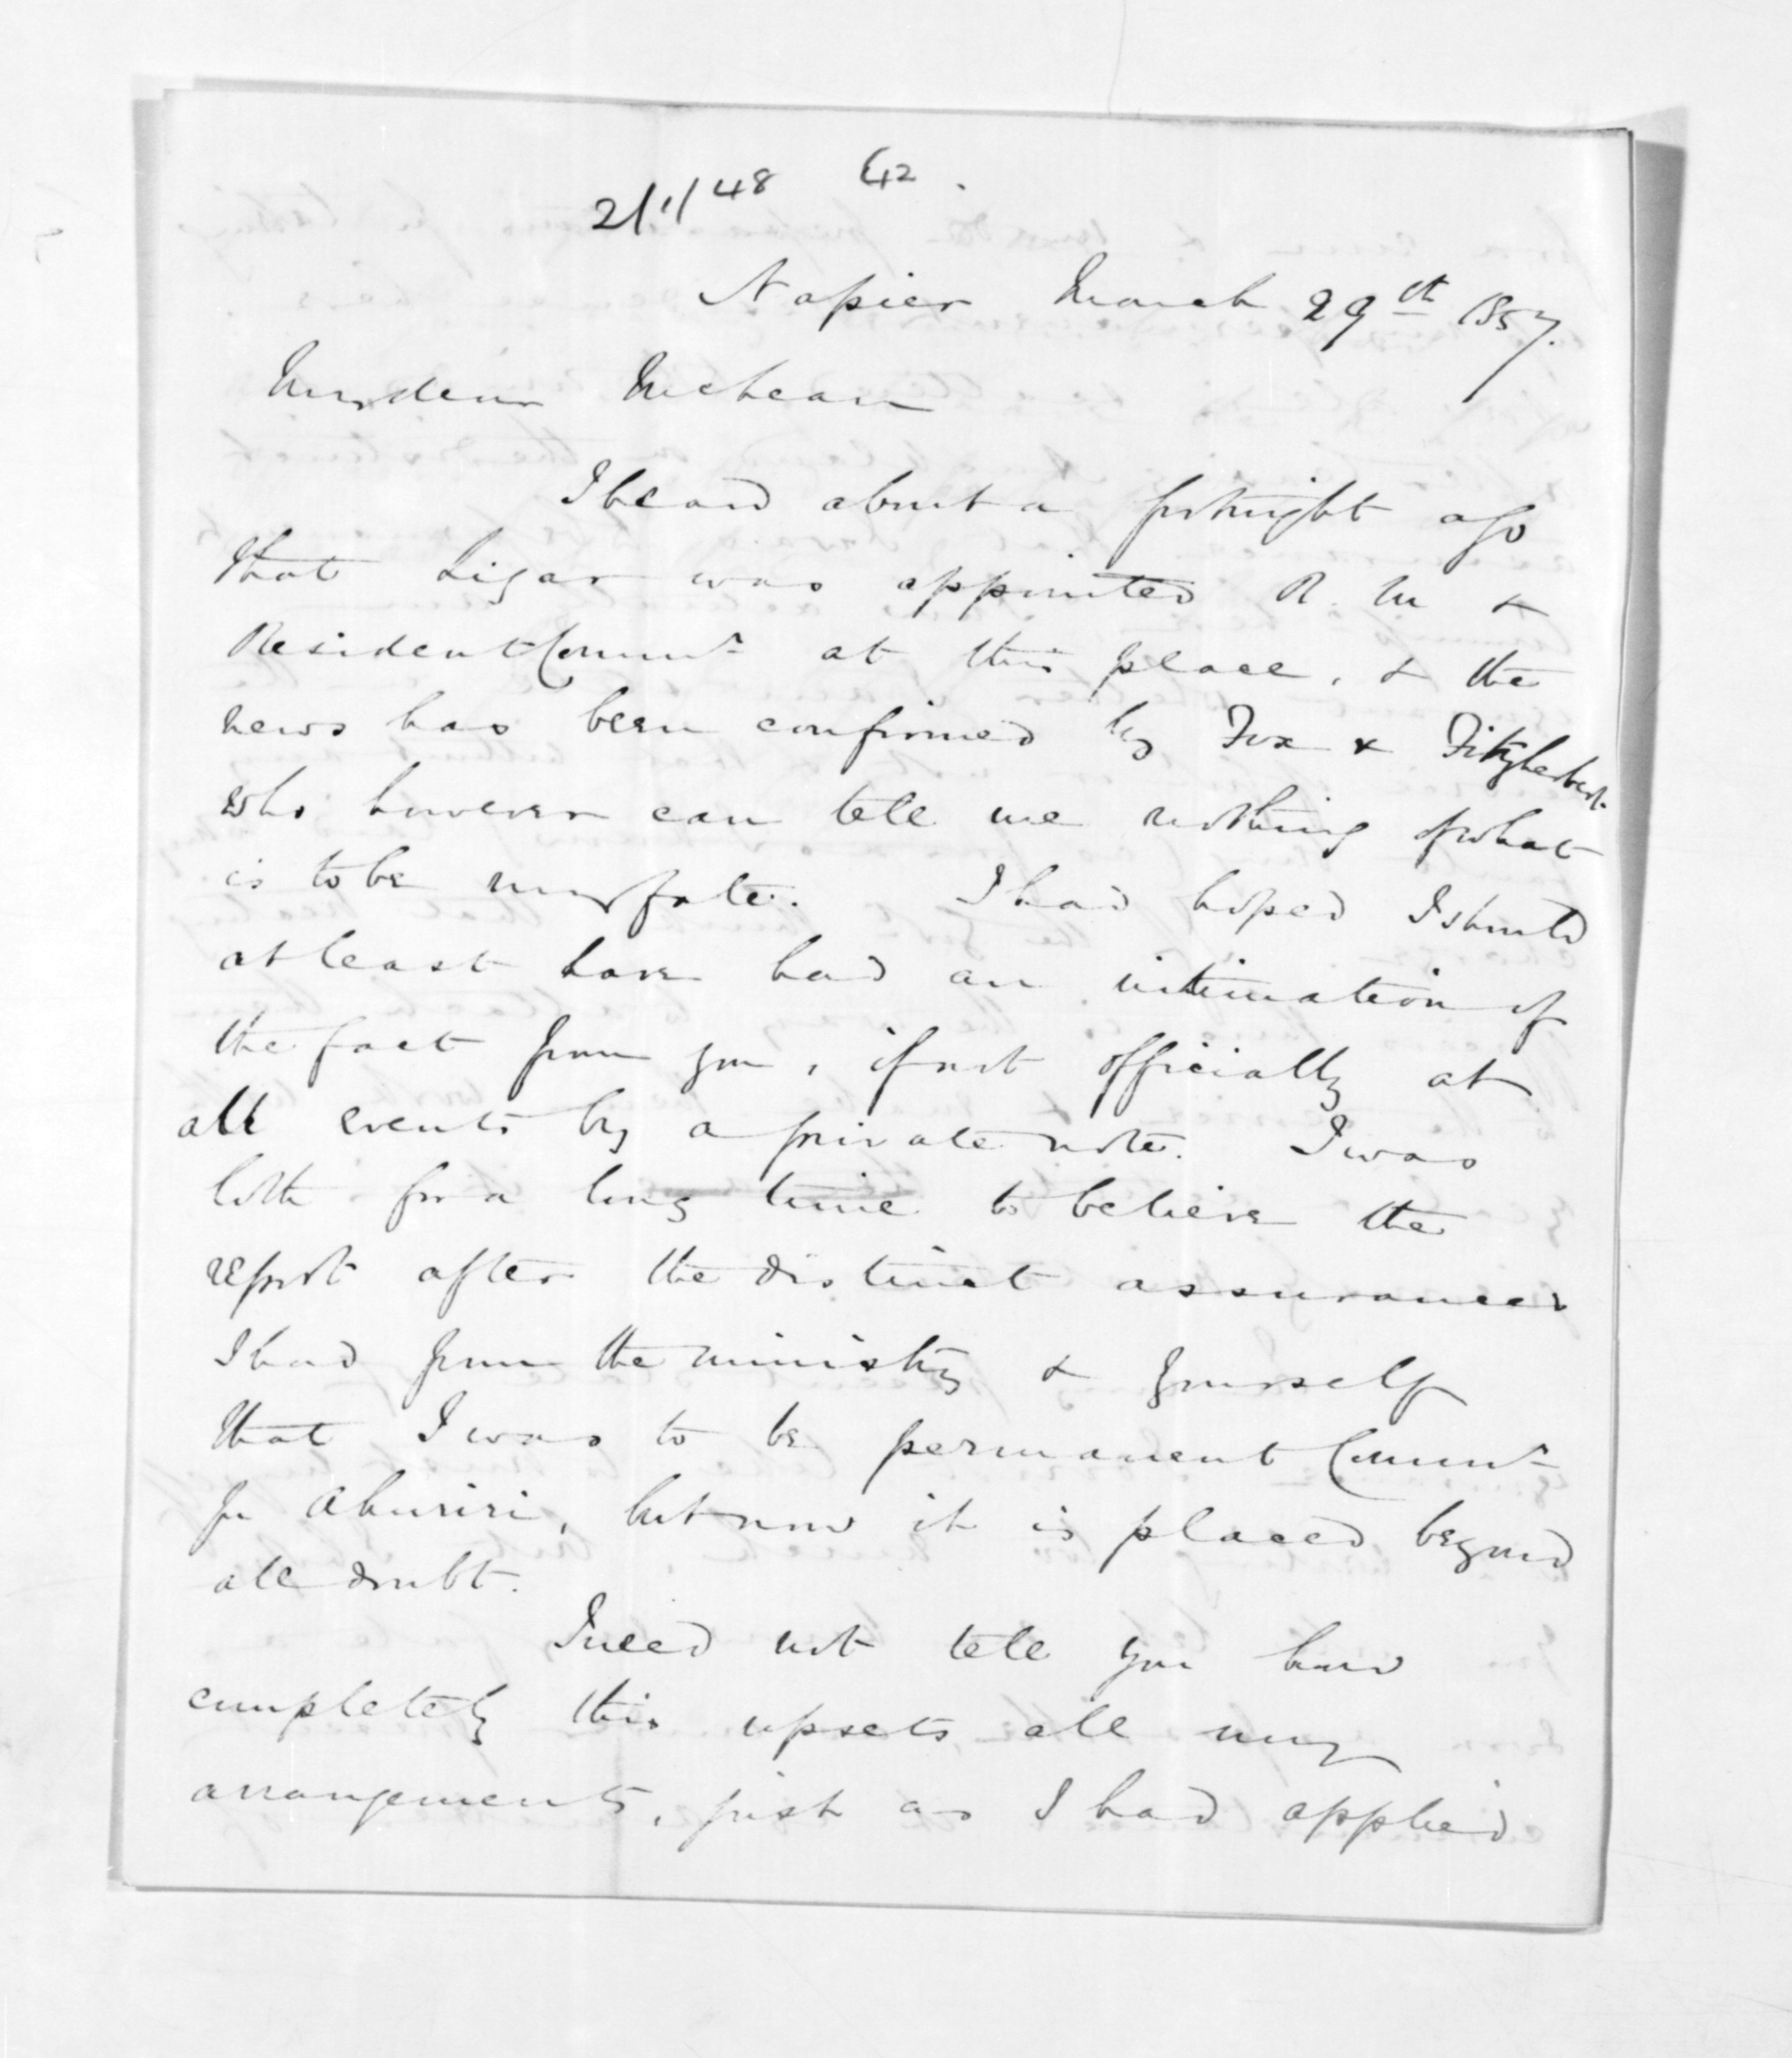 2/1/48 62.
Napier March 29th 1857.
My dear McLean
I heard about a fortnight ago
that Ligar was appointed R. M &
Resident Commr at this place, & the
news has been confirmed by Fox & Fitzherbert
who however can tell me nothing of what
is to be my fate. I had hoped I should
at least have had an intimation of
the fact from you, if not officially at
all events by a private note. I was
loth for a long time to believe the
report after the distinct assurances
I had from the ministry & yourself
that I was to be permanent Commr
for Ahuriri, but now it is placed beyond
all doubt.
I need not tell you how
completely this upsets all my
arrangements, just as I had applied